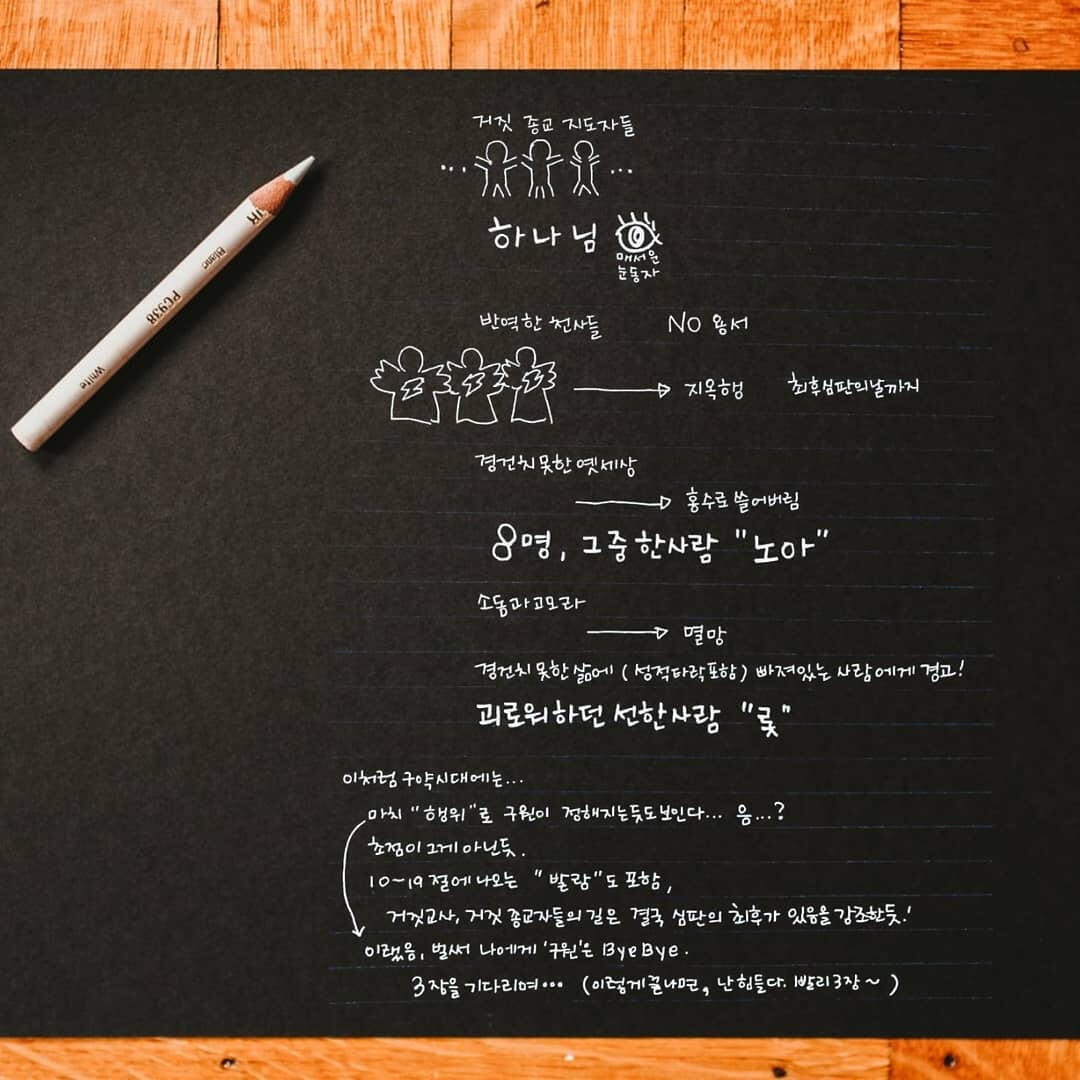 거짓 종교 지도자들
... ...
하나님
매서운
눈동자
반역한 천사들 NO 용서
지옥행 최후심판의날까지
경건치못한옛세상
홍수로 쓸어버림
8명, 그중한사람 "노아"
소돔과고모라
멸망
경건치못한삶에 (성적타락포함) 빠져있는 사람에게 경고!
괴로워하던 선한사람 "롯"
이처럼구약시대에는...
마치 "행위"로 구원이 정해지는듯도보인다... 음...?
초점이그게아닌듯.
10~19절에나오는 "발람"도 포함,
거짓교사, 거짓 종교자들의 길은 결국 심판의 최후가 있음을강조한듯!
이랬음, 벌써 나에게 '구원'은 ByeBye.
3장을기다리며... (이렇게끝나면, 난힘들다. 빨리3장~)
PC938
Blanc
White